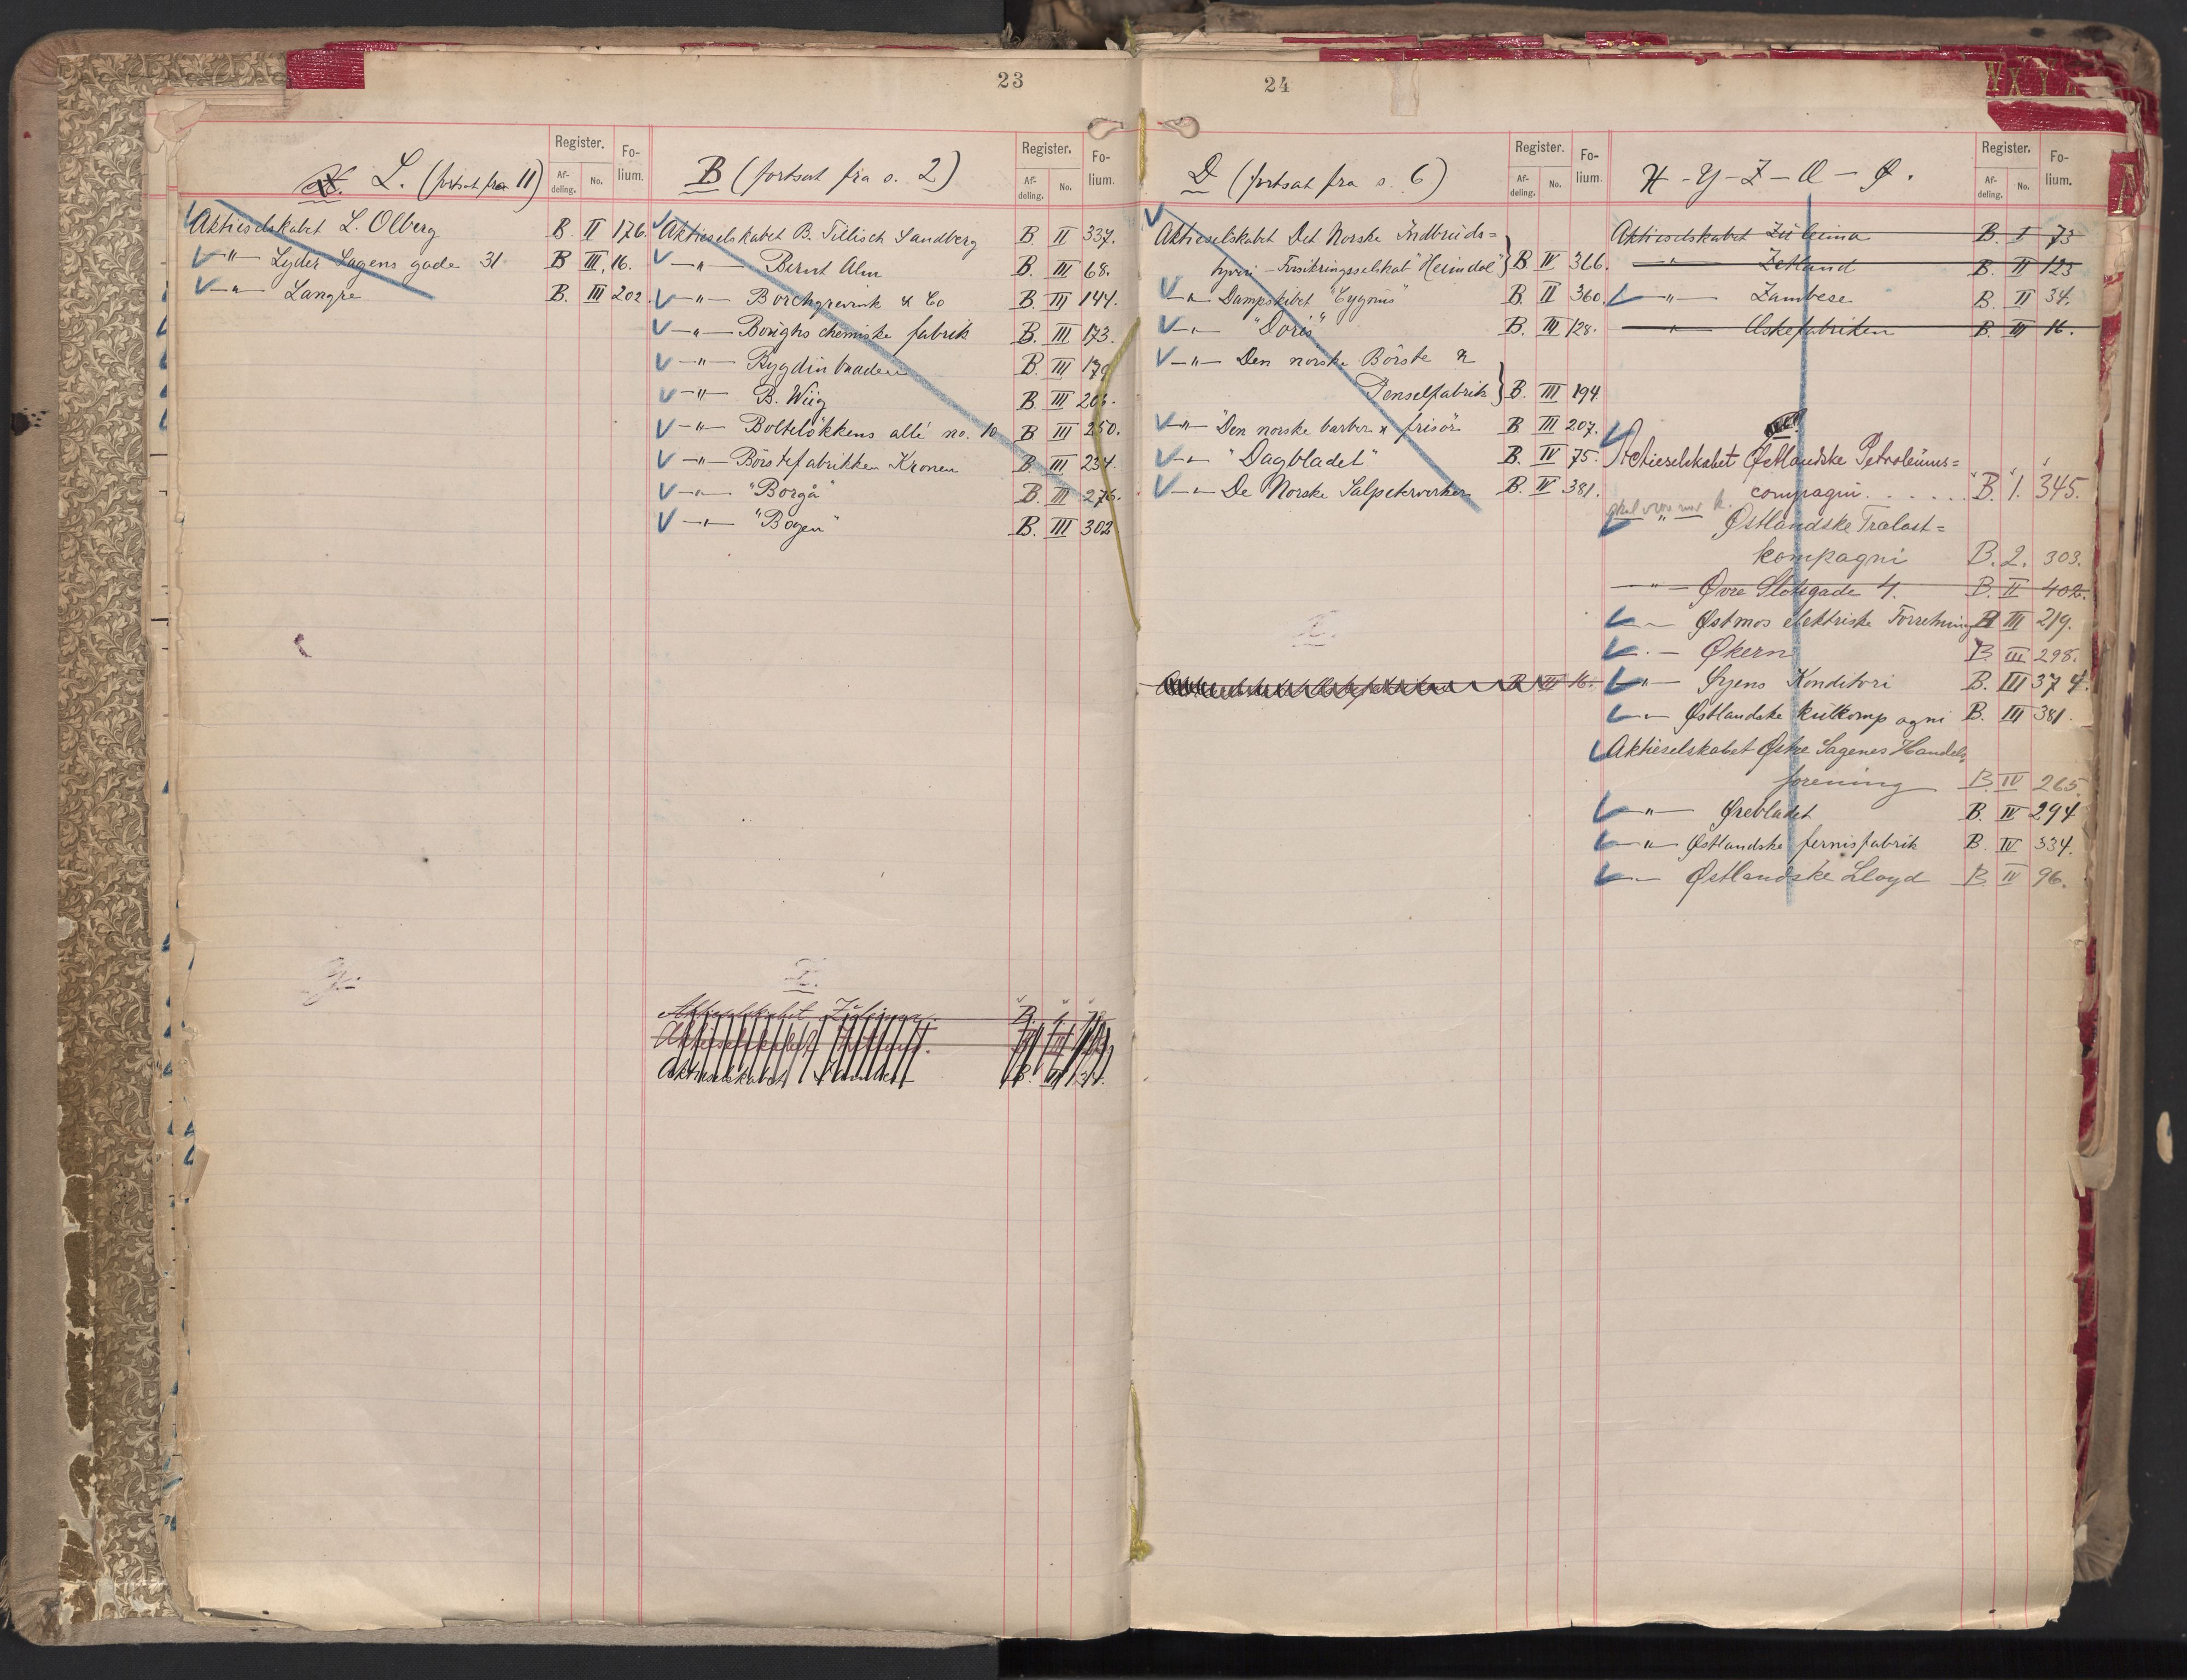 23
L. (fortsat fra 11)
Register.
Af-
deling.
No.
Fo-
lium.
Aktieselskabet L. Olberg B. II 176.
—"— Lyder Sagens gade 31 B III, 16.
—"— Langre B. III 202
B (fortsat fra s. 2)
Register.
Af-
deling.
No.
Fo-
lium.
Aktieselskabet B. Tillisch Sandberg B. II 337.
—"— Bernt Alm B. III 68.
—"— Borchgrevink & Co B. III 144.
—"— Borighs chemiske fabrik B. III 173.
—"— Bygdin baaden B. III
—"— B. Wiig B. III
—"— Bolteløkkens allé no. 10 B III 250.
—"— Börstefabrikken Kronen B. III 234.
—"— "Borgå" B. III 276.
—"— "Bogen" B. III 302
Z.
Aktieselskabet B. I
Aktieselskabet
Aktieselskabet B. II 34.
24
D (fortsat fra s. 6)
Register.
Af-
deling.
No.
Fo-
lium.
Aktieselskabet Det Norske Indbruds=
tyveri-Forsikringsselskab "Heimdal" B IV 366.
—"— Dampskibet "Cygnus" B. II 360.
—"— "Doris" B. III 128.
—"— Den norske Börste &
Penselfabrik B. III 194
—"— "Den norske barber & frisör" B III 207.
—"— "Dagbladet" B. IV 75.
—"— De Norske Salpeterverker B. IV 381.
B. III 16.
X - Y - Z - Æ - Ø.
Register.
Af-
deling.
No.
Fo-
lium.
Aktieselskabet Zuleima B. I 73
—"— Zetland B. II 123
—"— Zambese B. II 34.
—"— Askefabriken B. III 16.
Actieselskabet Østlandske Petroleums=
compagni . . . . . . B. 1. 345.
skal være med k.
—"— Østlandske Trælast=
kompagni B. 2. 303.
—"— Øvre Slotsgade 4. B. II 402.
—"— Østmos elektriske Forretning B III 219.
—"— Økern B. III 298.
—"— Øyens Konditori B. III 374.
—"— Østlandske kulkompagni B. III 381.
Aktieselskabet Østre Sagenes Handels-
forening B. IV 265
—"— Ørebladet B. IV 294
—"— Østlandske fernisfabrik B. IV 334.
—"— Østlandske Lloyd B. IV 96.